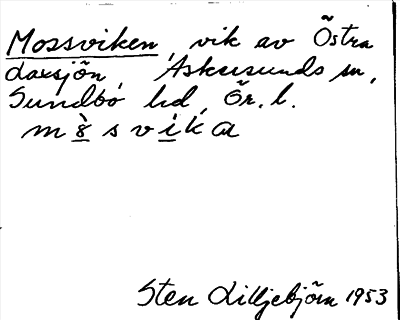 Mossviken, vik av Östra
Laxsjön, Askersunds sn,
Sundbo hd, Ör. l.
mò̱svi̱̇ka
Sten Lilljebjörn 1953